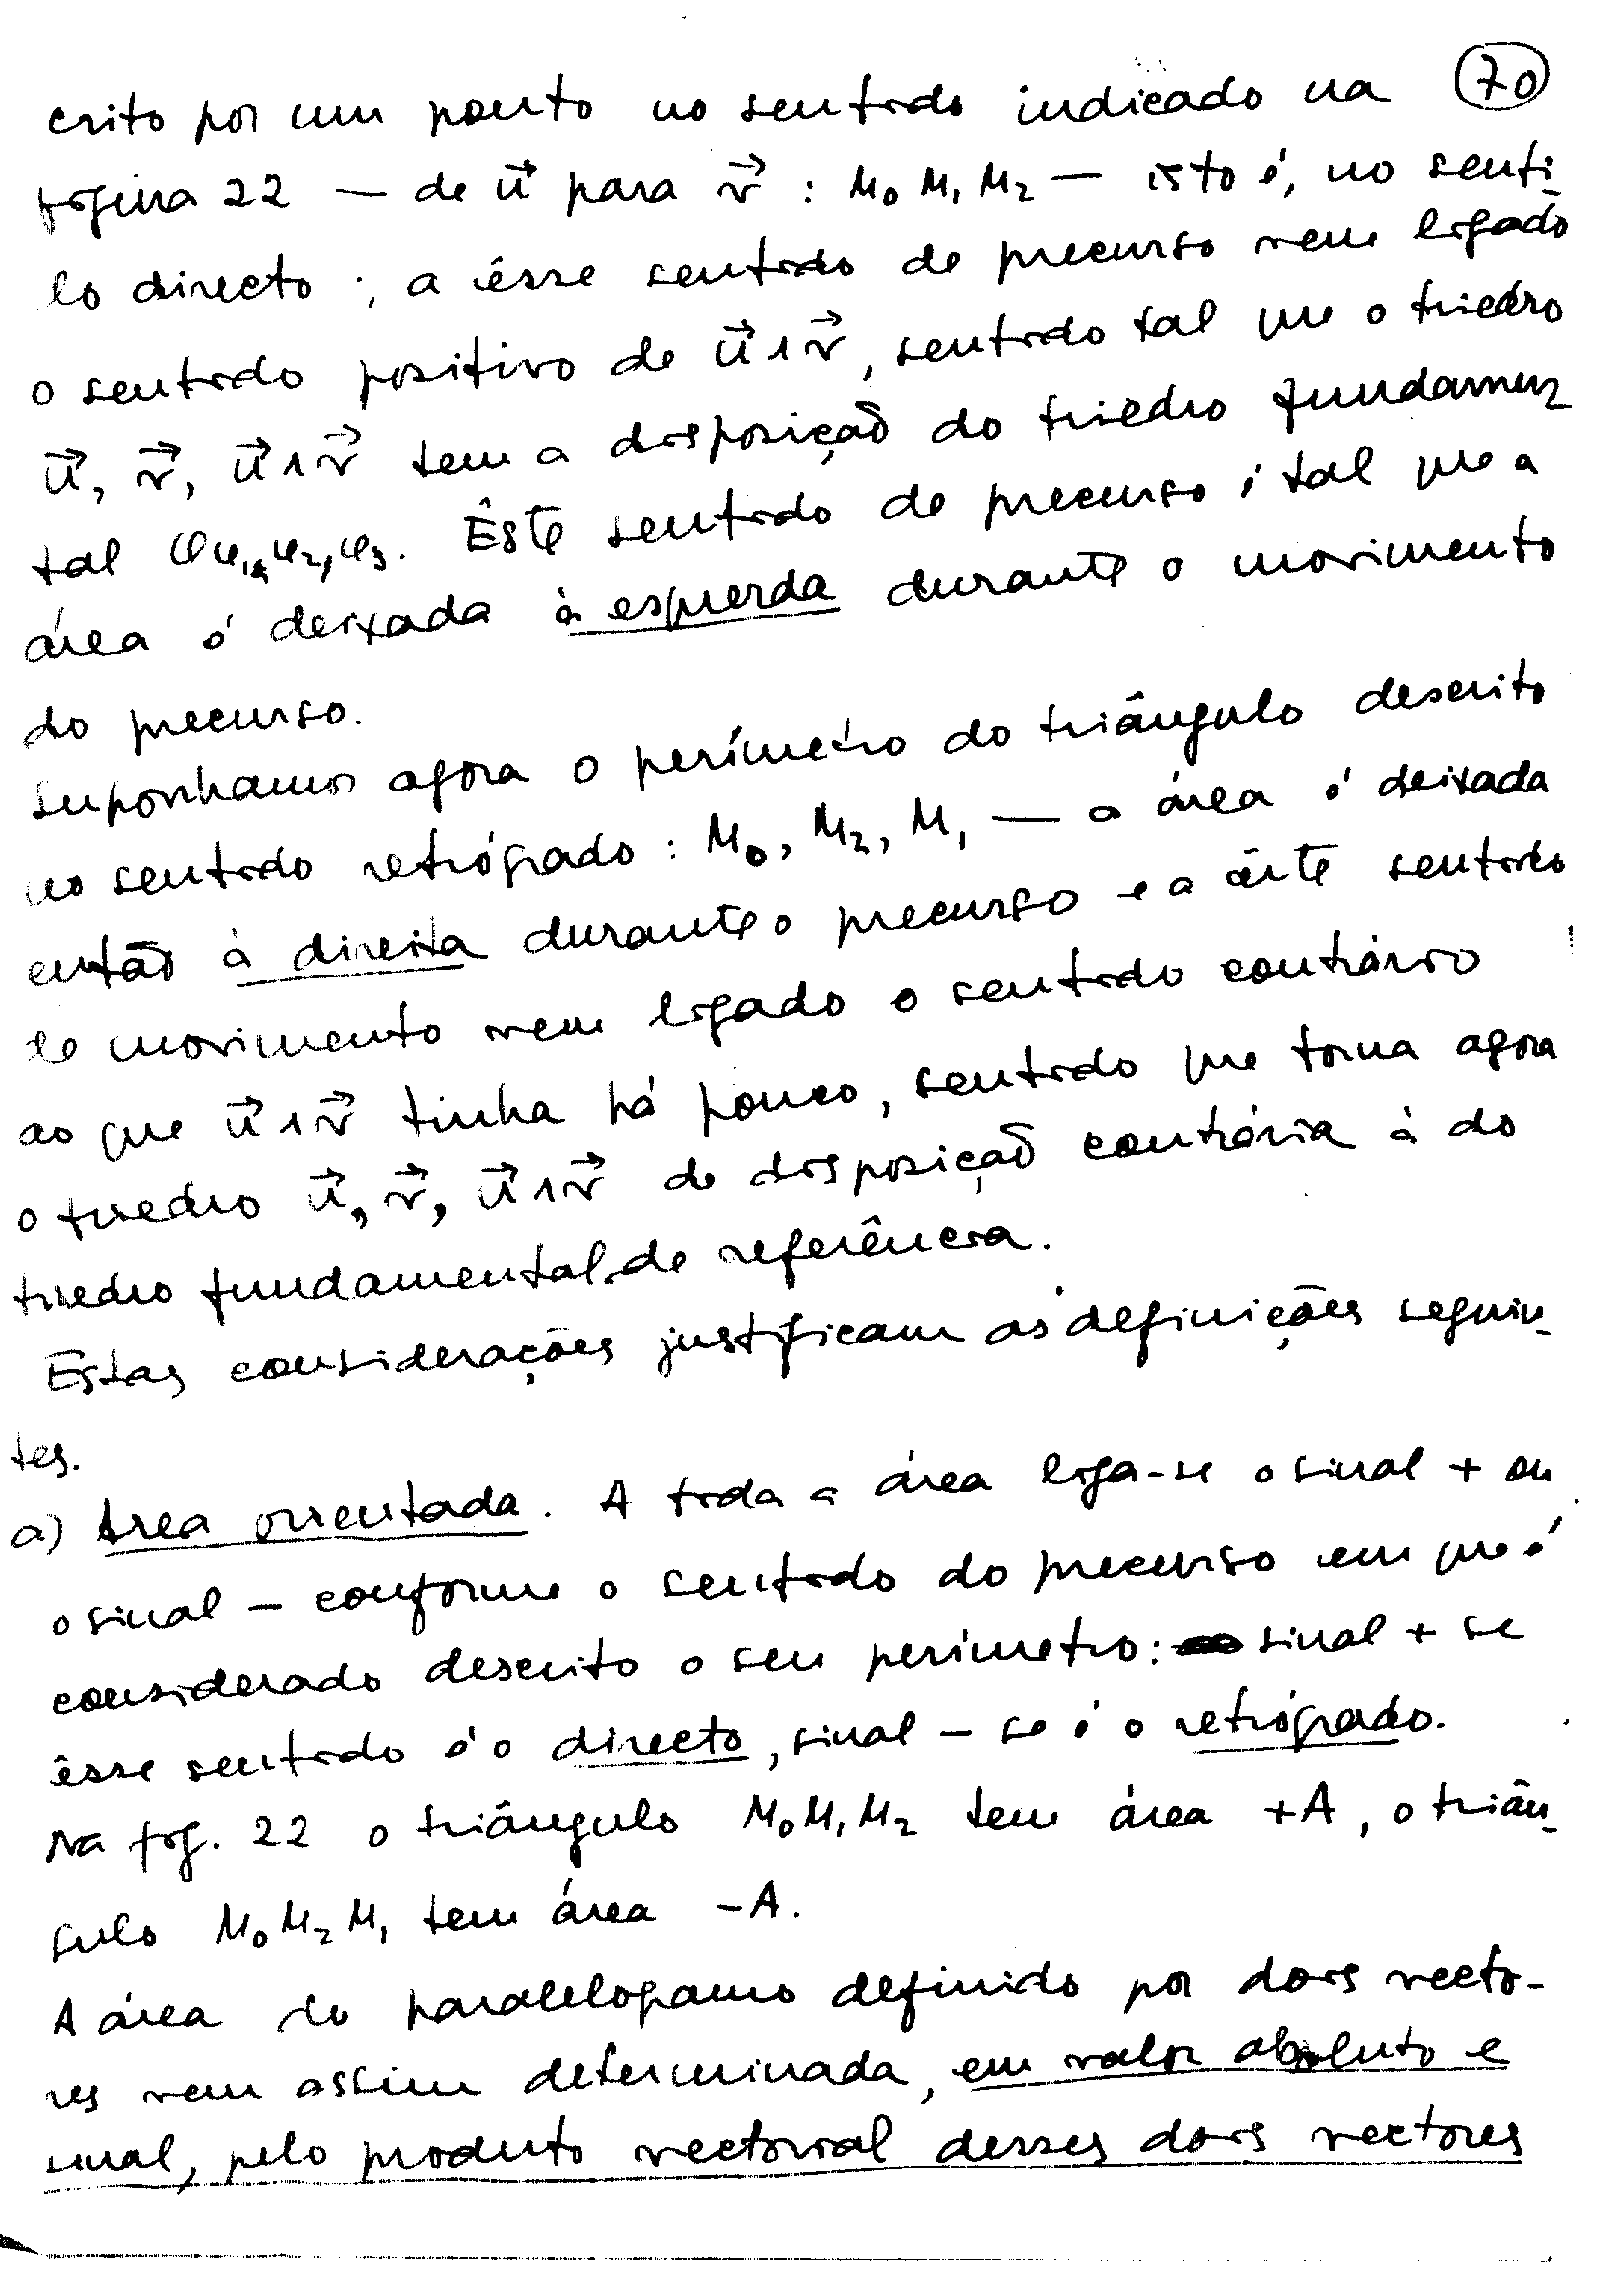 70
crito por um ponto no sentido indicado na
figura 22 — de u⃗ para v⃗ : M₀ M₁ M₂ — isto é, no senti-
do directo ; a êsse sentido de precurso vem ligado
o sentido positivo de u⃗ ∧ v⃗, sentido tal que o triedro
u⃗, v⃗, u⃗ ∧ v⃗ tem a disposição do triedro fundamen-
tal Ou₁,u₂,u₃. Êste sentido de precurso é tal que a
área é deixada à esquerda durante o movimento
do precurso.
Suponhamos agora o perímetro do triângulo descrito
no sentido retrógrado : M₀, M₂, M₁ — a área é deixada
então à direita durante o precurso e a êste sentido
do movimento vem ligado o sentido contrário
ao que u⃗ ∧ v⃗ tinha há pouco, sentido que torna agora
o triedro u⃗, v⃗, u⃗ ∧ v⃗ de disposição contrária à do
triedro fundamental de referência.
Estas considerações justificam as definições seguin-
tes.
a) Área orientada. A toda a área liga-se o sinal + ou
o sinal — conforme o sentido do precurso em que é
considerado descrito o seu perímetro: sinal + se
êsse sentido é o directo, sinal — se é o retrógrado.
Na fig. 22 o triângulo M₀M₁M₂ tem área +A, o triân-
gulo M₀M₂M₁ tem área -A.
A área do paralelogramo definido por dois vecto-
res vem assim determinada, em valor absoluto e
sinal, pelo produto vectorial desses dois vectores